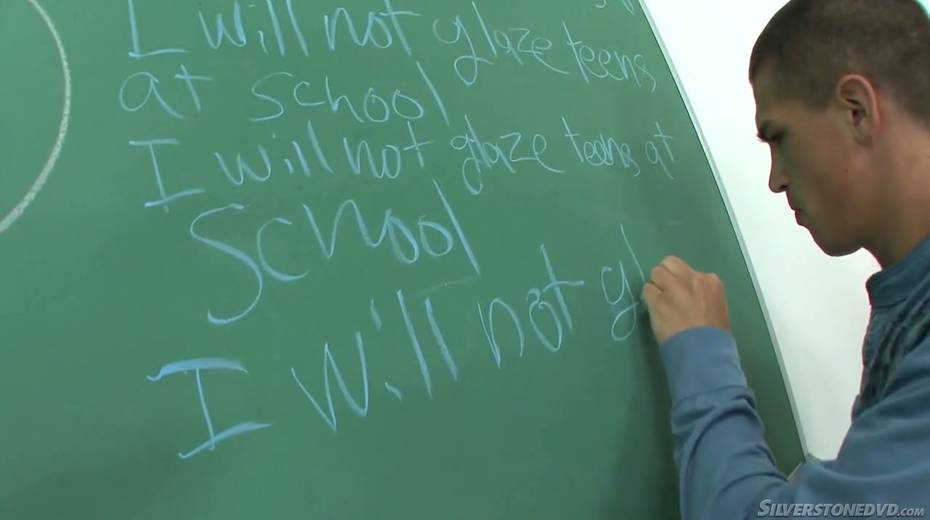 I will not glaze teens
at school
I will not glaze teens at
School
I will not gl
SILVERSTONEDVD.COM